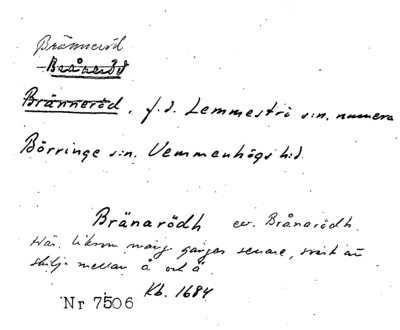 Bränneröd
Bråneröd
Bränneröd, f.d. Lemmeströ s:n, numera
Börringe s:n. Vemmenhögs h:d.
Bränarödh ev. Brånarödh.
här, liksom mång gånger senare, svårt att
skilja mellan å och ä.
Kb. 1684
Nr 7506